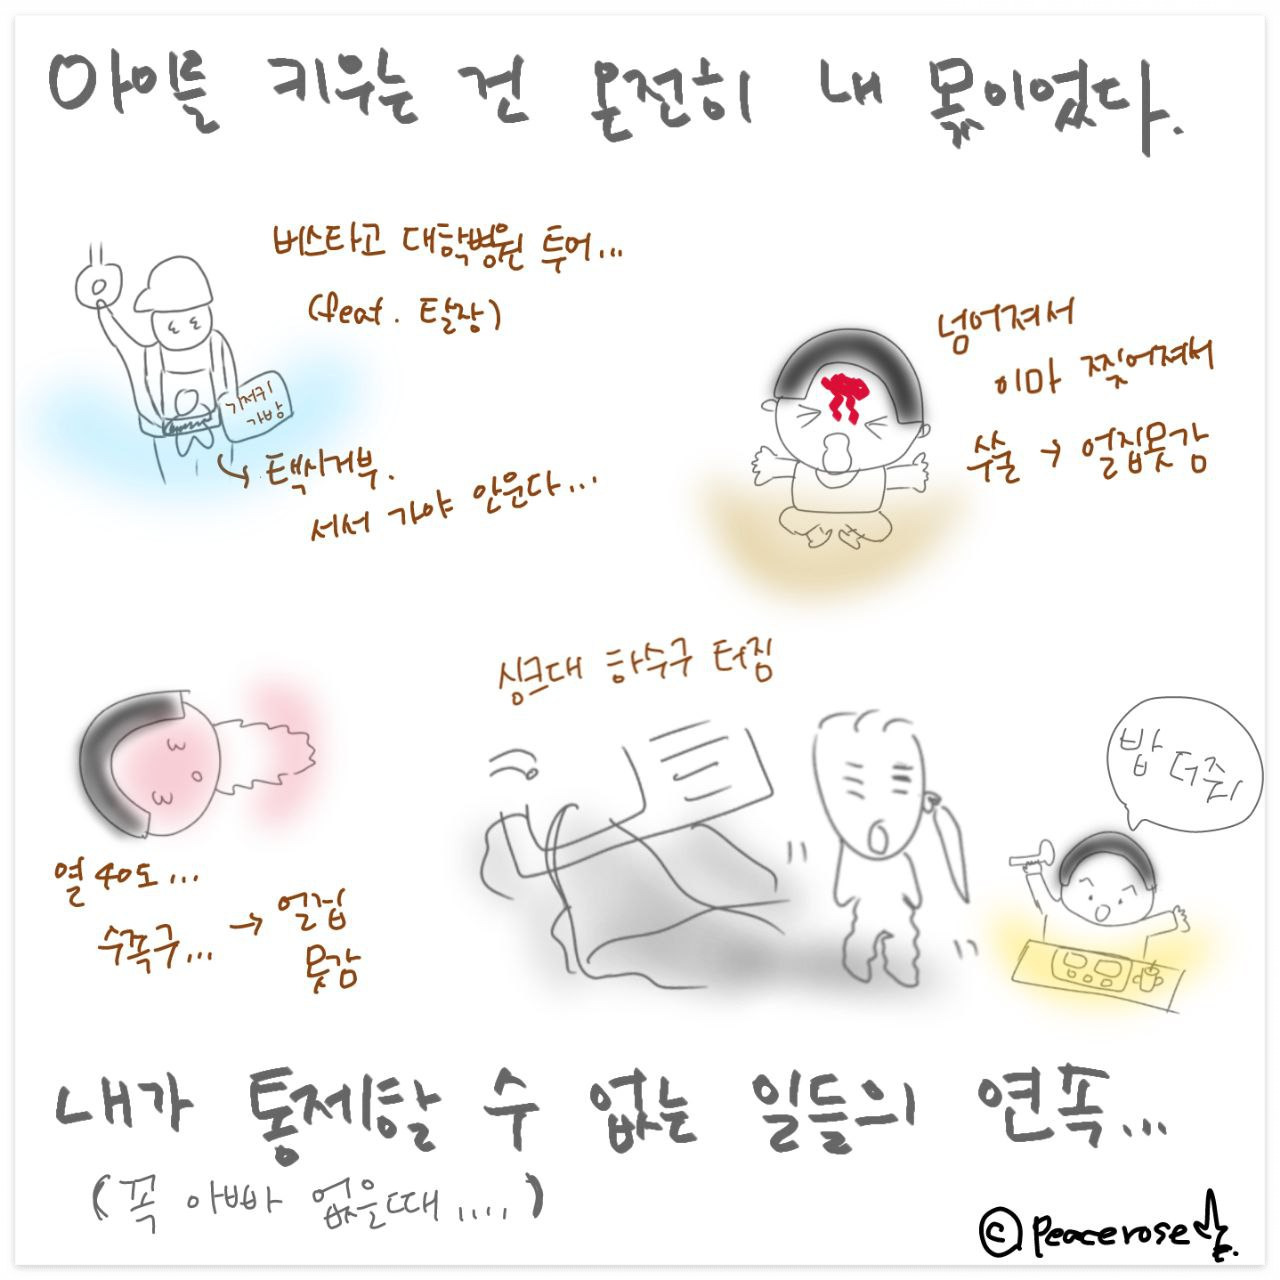 아이를 키우는 건 온전히 내 몫이었다.
버스타고 대학병원 투어...
(feat. 탈장)
기저귀
가방
택시거부.
서서 가야 안운다...
넘어져서
이마 찢어져서
수술 → 얼집못감
싱크대 하수구 터짐
밥 더줘!
열 40도...
수족구... → 얼집
못감
내가 통제할 수 없는 일들의 연속...
(꼭 아빠 없을때....)
© Peacerose